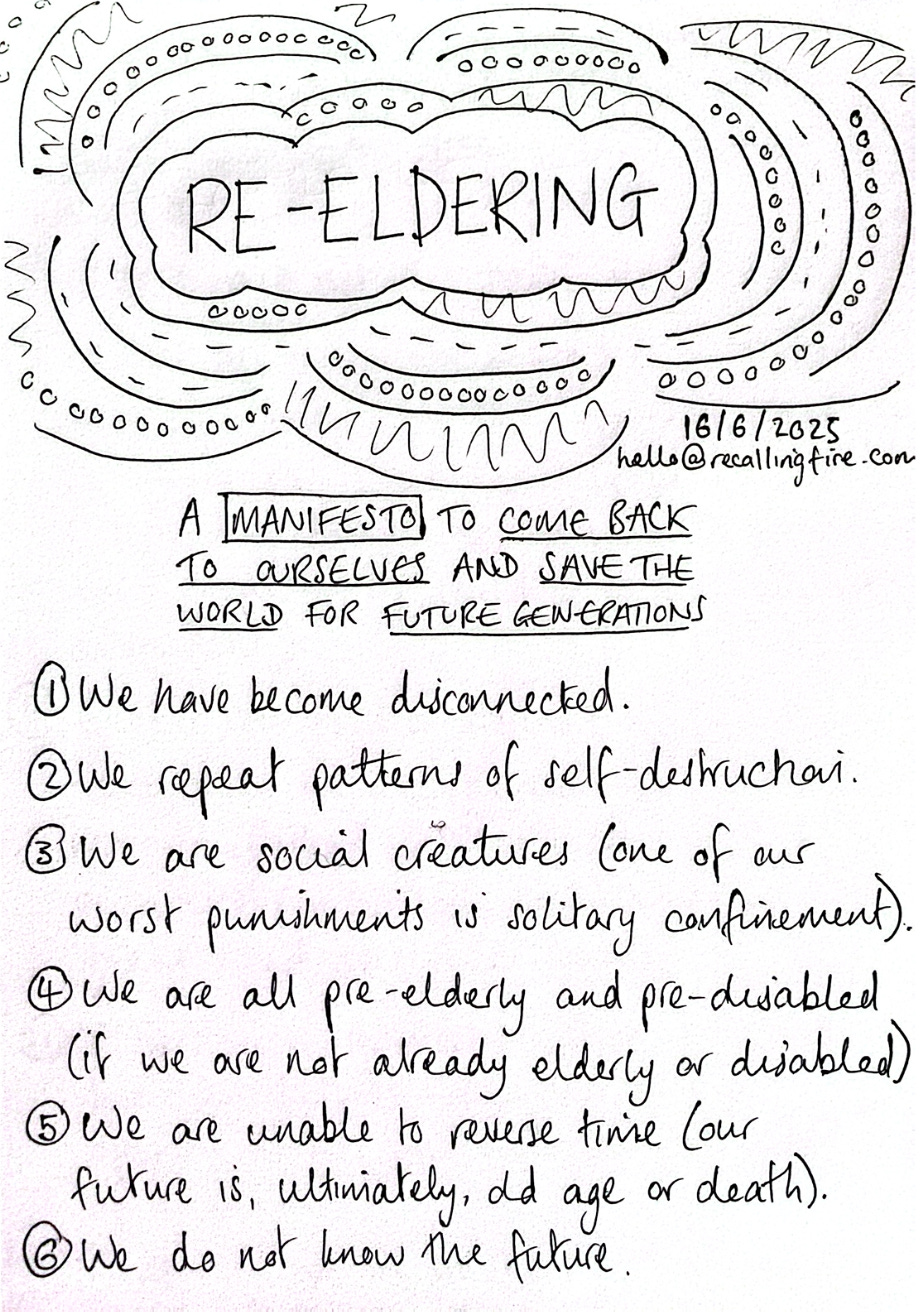 RE-ELDERING
16/6/2025
hello@recallingfire.com
A MANIFESTO TO COME BACK
TO OURSELVES AND SAVE THE
WORLD FOR FUTURE GENERATIONS
① We have become disconnected.
② We repeat patterns of self-destruction.
③ We are social creatures (one of our
worst punishments is solitary confinement).
④ We are all pre-elderly and pre-disabled
(if we are not already elderly or disabled)
⑤ We are unable to reverse time (our
future is, ultimately, old age or death).
⑥ We do not know the future.